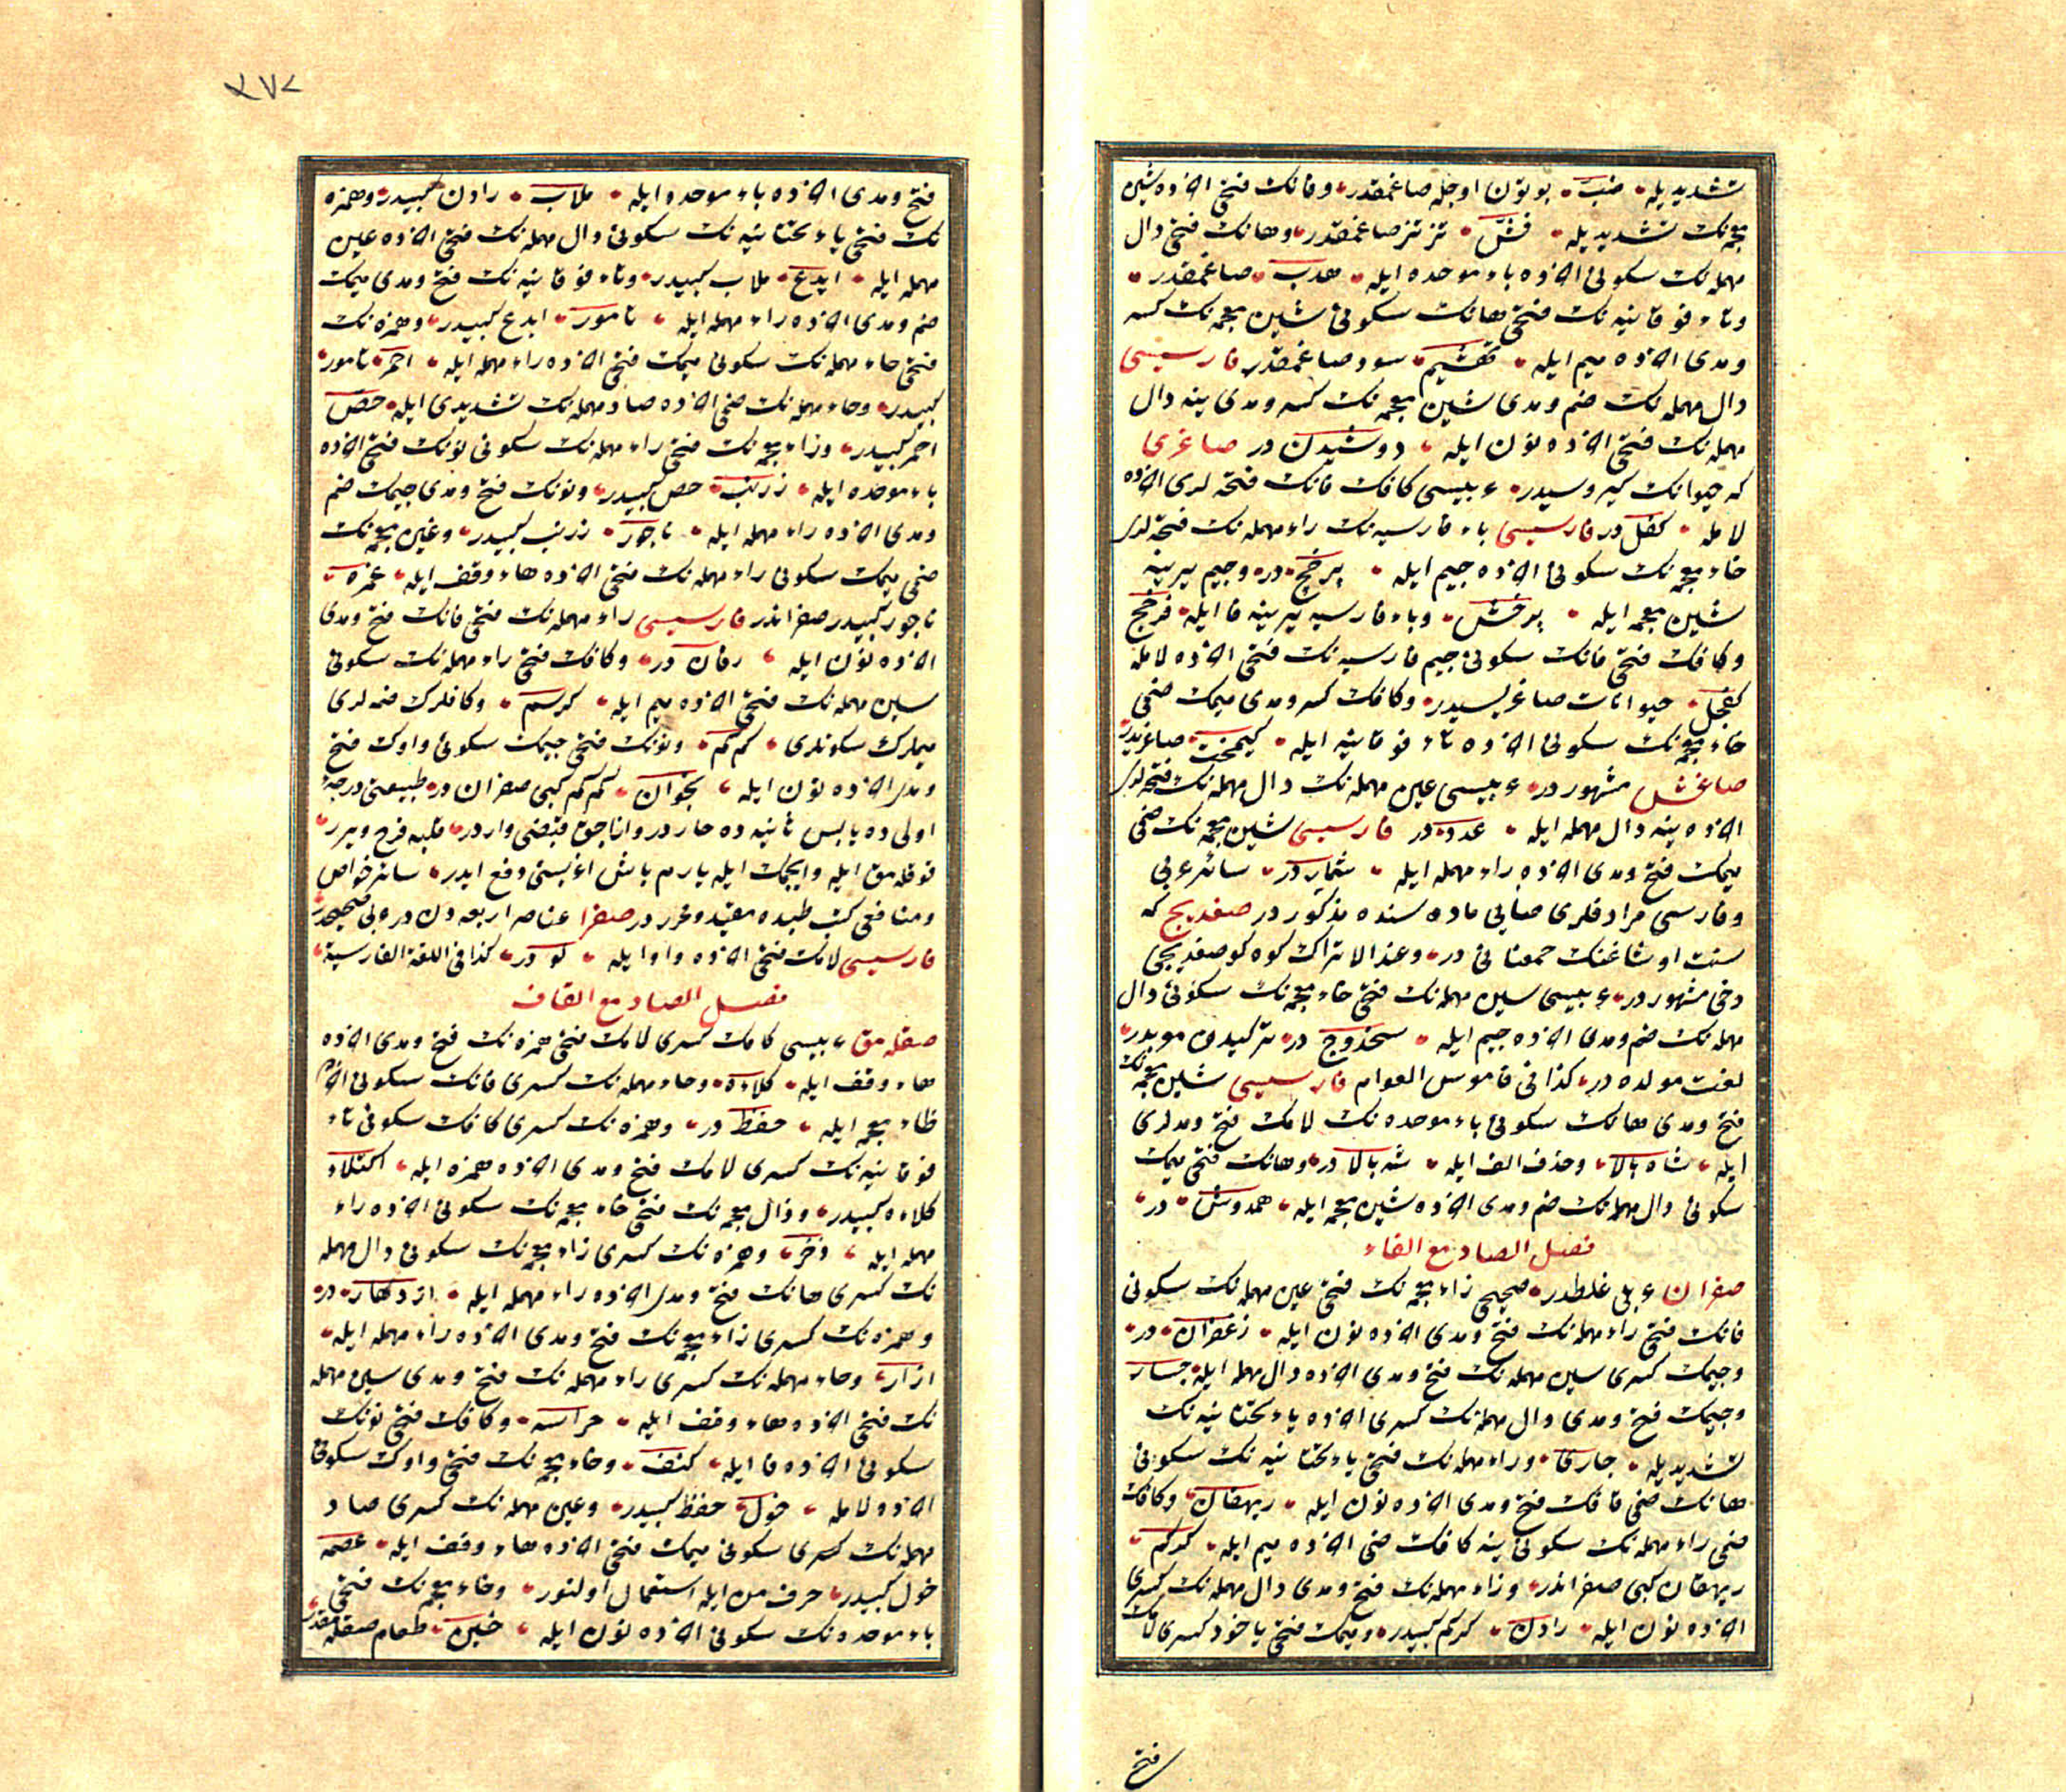 تشدیدیله ضبّ بوتون اوجله صاغمقدر وفانك فتحی آخرده شین
معجمه‌نك تشدیدیله فشّ تز تز صاغمقدر وهانك فتحی دال
مهمله‌نك سكونی آخرده باء موحده ایله هدب صاغمقدر
وتاء فوقانیه‌نك فتحی هانك سكونی شین معجمه‌نك كسر
ومدی آخرده میم ایله تهشیم سود صاغمقدر فارسیسی
دال مهمله‌نك ضم ومدی شین معجمه‌نك كسر ومدی ینه دال
مهمله‌نك فتحی آخرده نون ایله دوشیدن در صاغری
كه حیوانك كیروسیدر عربیسی كافك فانك فتحه‌لری آخرده
لامله كفل در فارسیسی باء فارسیه‌نك راء مهمله‌نك فتحه‌لری
خاء معجمه‌نك سكونی آخرده جیم ایله پرخج در وجیم یرینه
شین معجمه ایله پرخش وباء فارسیه یرینه فا ایله فرخج
وكافك فتحی فانك سكونی جیم فارسیه‌نك فتحی آخرده لامله
كفچل حیوانات صاغریسیدر وكافك كسر ومدی میمك ضمی
خاء معجمه‌نك سكونی آخرده تاء فوقانیه ایله كیمخت صاغریدر
صاغش مشهوردر عربیسی عین مهمله‌نك دال مهمله‌نك فتحه‌لری
آخرده ینه دال مهمله ایله عدد در فارسیسی شین معجمه‌نك ضمی
میمك فتح ومدی آخرده راء مهمله ایله شمار در سائر عربی
وفارسی مرادفلری صایی ماده‌سنده مذكور در صغدیج كه
سنت اوشاغنك حمعنانی در وعند الاتراك كوه كو صغدیجی
دخی مشهور در عربیسی سین مهمله‌نك فتحی خاء معجمه‌نك سكونی دال
مهمله‌نك ضم ومدی آخرده جیم ایله سخدوج در تركیدن موبدر
لغت مولده در كذا فی قاموس العوام فارسیسی شین معجمه‌نك
فتح ومدی هانك سكونی باء موحده‌نك لامك فتح ومدلری
ایله شاه بالا وحذف الف ایله شه بالا در وهانك فتحی میمك
سكونی دال مهمله‌نك ضم ومدی آخرده شین معجمه ایله همدوش در
فصل الصاد مع الفاء
صفران عربی غلطدر صحیحی زاء معجمه‌نك فتحی عین مهمله‌نك سكونی
فانك فتحی راء مهمله‌نك فتح ومدی آخرده نون ایله زعفران در
وجیمك كسری سین مهمله‌نك فتح ومدی آخرده دال مهمله ایله جساد
وجیمك فتح ومدی دال مهمله‌نك كسری آخرده یاء تحتانیه‌نك
تشدیدیله جادی وراء مهمله‌نك فتحی یاء تحتانیه‌نك سكونی
هانك ضمی قافك فتح ومدی آخرده نون ایله ریهقان وكافك
ضمی راء مهمله‌نك سكونی ینه كافك ضمی آخرده میم ایله كركم
ریهقان كبی صفراندر وراء مهمله‌نك فتح ومدی دال مهمله‌نك كسری
آخرده نون ایله رادن كركم كبیدر ومیمك فتحی یاخود كسری لامك
فتح
٢٧٨
فتح ومدی آخرده باء موحده ایله ملاب رادن كبیدر وهمزه
نك فتحی یاء تحتانیه‌نك سكونی دال مهمله‌نك فتحی آخرده عین
مهمله ایله ایدع ملاب كبیدر وتاء فوقانیه‌نك فتح ومدی میمك
ضم ومدی آخرده راء مهمله ایله تامور ایدع كبیدر وهمزه‌نك
فتحی حاء مهمله‌نك سكونی میمك فتحی آخرده راء مهمله ایله احمر تامور
كبیدر وحاء مهمله‌نك ضمی آخرده صاد مهمله‌نك تشدیدی ایله حصّ
احمر كبیدر وزاء معجمه‌نك فتحی راء مهمله‌نك سكونی نونك فتحی آخرده
باء موحده ایله زرنب حص كبیدر ونونك فتح ومدی جیمك ضم
ومدی آخرده راء مهمله ایله ناجور زرنب كبیدر وغین معجمه‌نك
ضمی میمك سكونی راء مهمله‌نك فتحی آخرده هاء وقف ایله غمره
ناجور كبیدر صفراندر فارسیسی راء مهمله‌نك فتحی فانك فتح ومدی
آخرده نون ایله رفان در وكافك فتحی راء مهمله‌نك سكونی
سین مهمله‌نك فتحی آخرده میم ایله كرسم وكافلرك ضمه‌لری
میملرك سكونلری كم كم ونونك فتحی جیمك سكونی واوك فتح
ومدی آخرده نون ایله نجوان كم كم كبی صفران در طبیعتی درجه‌ء
اولی ده یابس ثانیه ده حاردر واناجق قبضی واردر قلبه فرح ویرر
قوقلمق ایله وایچمك ایله یارم باش اغریسنی دفع ایدر سائر خواص
ومنافعی كتب طبیده مقید ومحرر در صفرا عناصر اربعه دن در عربی صحیحدر
فارسیسی لامك فتحی آخرده واو ایله لو در كذا فی اللغة الفارسیة
فصل الصاد مع القاف
صقلمق عربیسی كافك كسری لامك فتحی همزه‌نك فتح ومدی آخرده
هاء وقف ایله كلاءة وحاء مهمله‌نك كسری فانك سكونی آخرده
ظاء معجمه ایله حفظ در وهمزه‌نك كسری كافك سكونی تاء
فوقانیه‌نك كسری لامك فتح ومدی آخرده همزه ایله اكتلاء
كلاءه كبیدر وذال معجمه‌نك فتحی خاء معجمه‌نك سكونی آخرده راء
مهمله ایله ذخر وهمزه‌نك كسری زاء معجمه‌نك سكونی دال مهمله
نك كسری هانك فتح ومدی آخرده راء مهمله ایله ازدهار در
وهمزه‌نك كسری زاء معجمه‌نك فتح ومدی آخرده راء مهمله ایله
ازار وحاء مهمله‌نك كسری راء مهمله‌نك فتح ومدی سین مهمله
نك فتحی آخرده هاء وقف ایله حراسه وكافك فتحی نونك
سكونی آخرده فا ایله كنف وخاء معجمه‌نك فتحی واوك سكونی
آخرده لامله خول حفظ كبیدر وعین مهمله‌نك كسری صاد
مهمله‌نك سكونی میمك فتحی آخرده هاء وقف ایله عصمه
خول كبیدر حرف من ایله استعمال اولنور وخاء معجمه‌نك فتحی
باء موحده‌نك سكونی آخرده نون ایله خبن طعام صقلمقدر